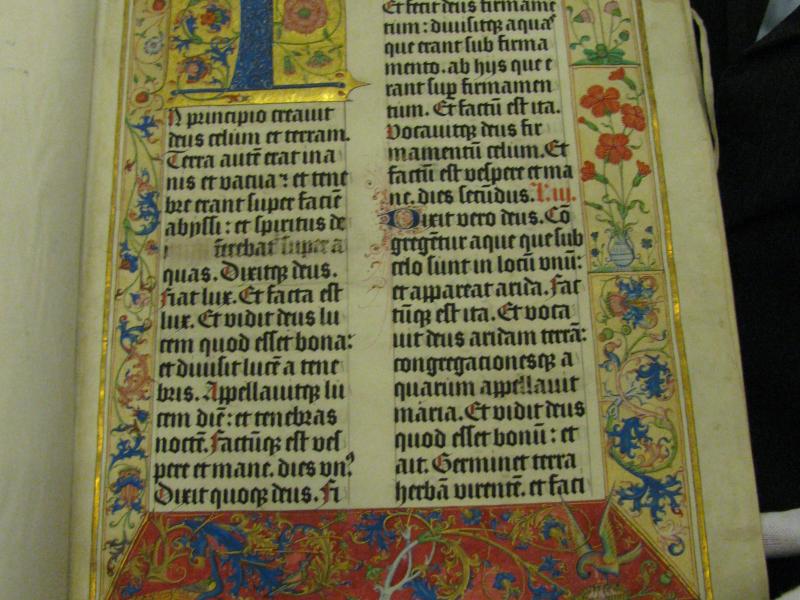 I
N principio creauit
deus celum et terram.
Terra autē erat ina
nis et vacua: et tene
bre erant super faciē
abyssi: et spiritus de
i ferebat᷑ super a
quas. Dixitqꝫ deus.
Fiat lux. Et facta est
lux. Et vidit deus lu
cem quod esset bona:
et diuisit lucē a tene
bris. Appellauitqꝫ lu
cem diē: et tenebras
noctē. Factūqꝫ est ves
pere et mane. dies vnꝰ
Dixit quoqꝫ deus. Fi
Et fecit deus firmamē
tum: diuisitqꝫ aquas
que erant sub firma
mento. ab hijs que e
rant suꝑ firmamen
tum. Et factū est ita.
Vocauitqꝫ deus fir
mamentū celum. Et
factū est vespere et ma
ne. dies secūdus. V. iij.
Dixit vero deus. Cō
gregētur aque que sub
celo sunt in locū vnū:
et appareat arida. Fac
tūqꝫ est ita. Et voca
uit deus aridam terrā:
congregacionesqꝫ a
quarum appellauit
maria. Et vidit deus
quod esset bonū: et
ait. Germinet terra
herbā virentē. et faci